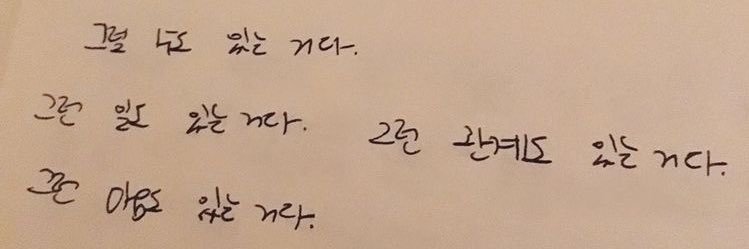 그럴 수도 있는 거다.
그런 일도 있는 거다.
그런 관계도 있는 거다.
그런 마음도 있는 거다.